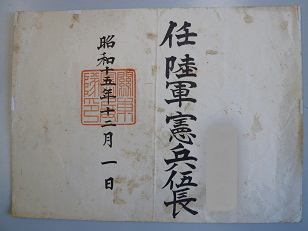 任陸軍憲兵伍長
昭和十五年十二月一日